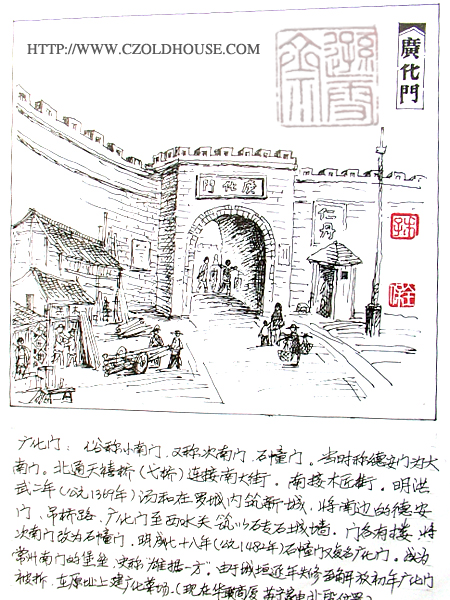 HTTP://WWW.CZOLDHOUSE.COM
廣化門
廣化門
仁丹
广化门：俗称小南门，又称次南门、石幢门。当时称德安门为大
南门。北通天禧桥（弋桥）连接南大街，南接木匠街。明洪
武二年（公元1369年）汤和在罗城内筑新城，将南边的德安
门、吊桥路、广化门至西水关筑以石城墙，门各有楼，将
次南门改为石幢门，明成化十八年（公元1482年）石幢门又复名广化门。成为
常州南门的堡垒，史称“雄据一方”。由于城垣近年失修至解放初年广化门
被拆，在原址上建广化菜场。（现在华联商厦